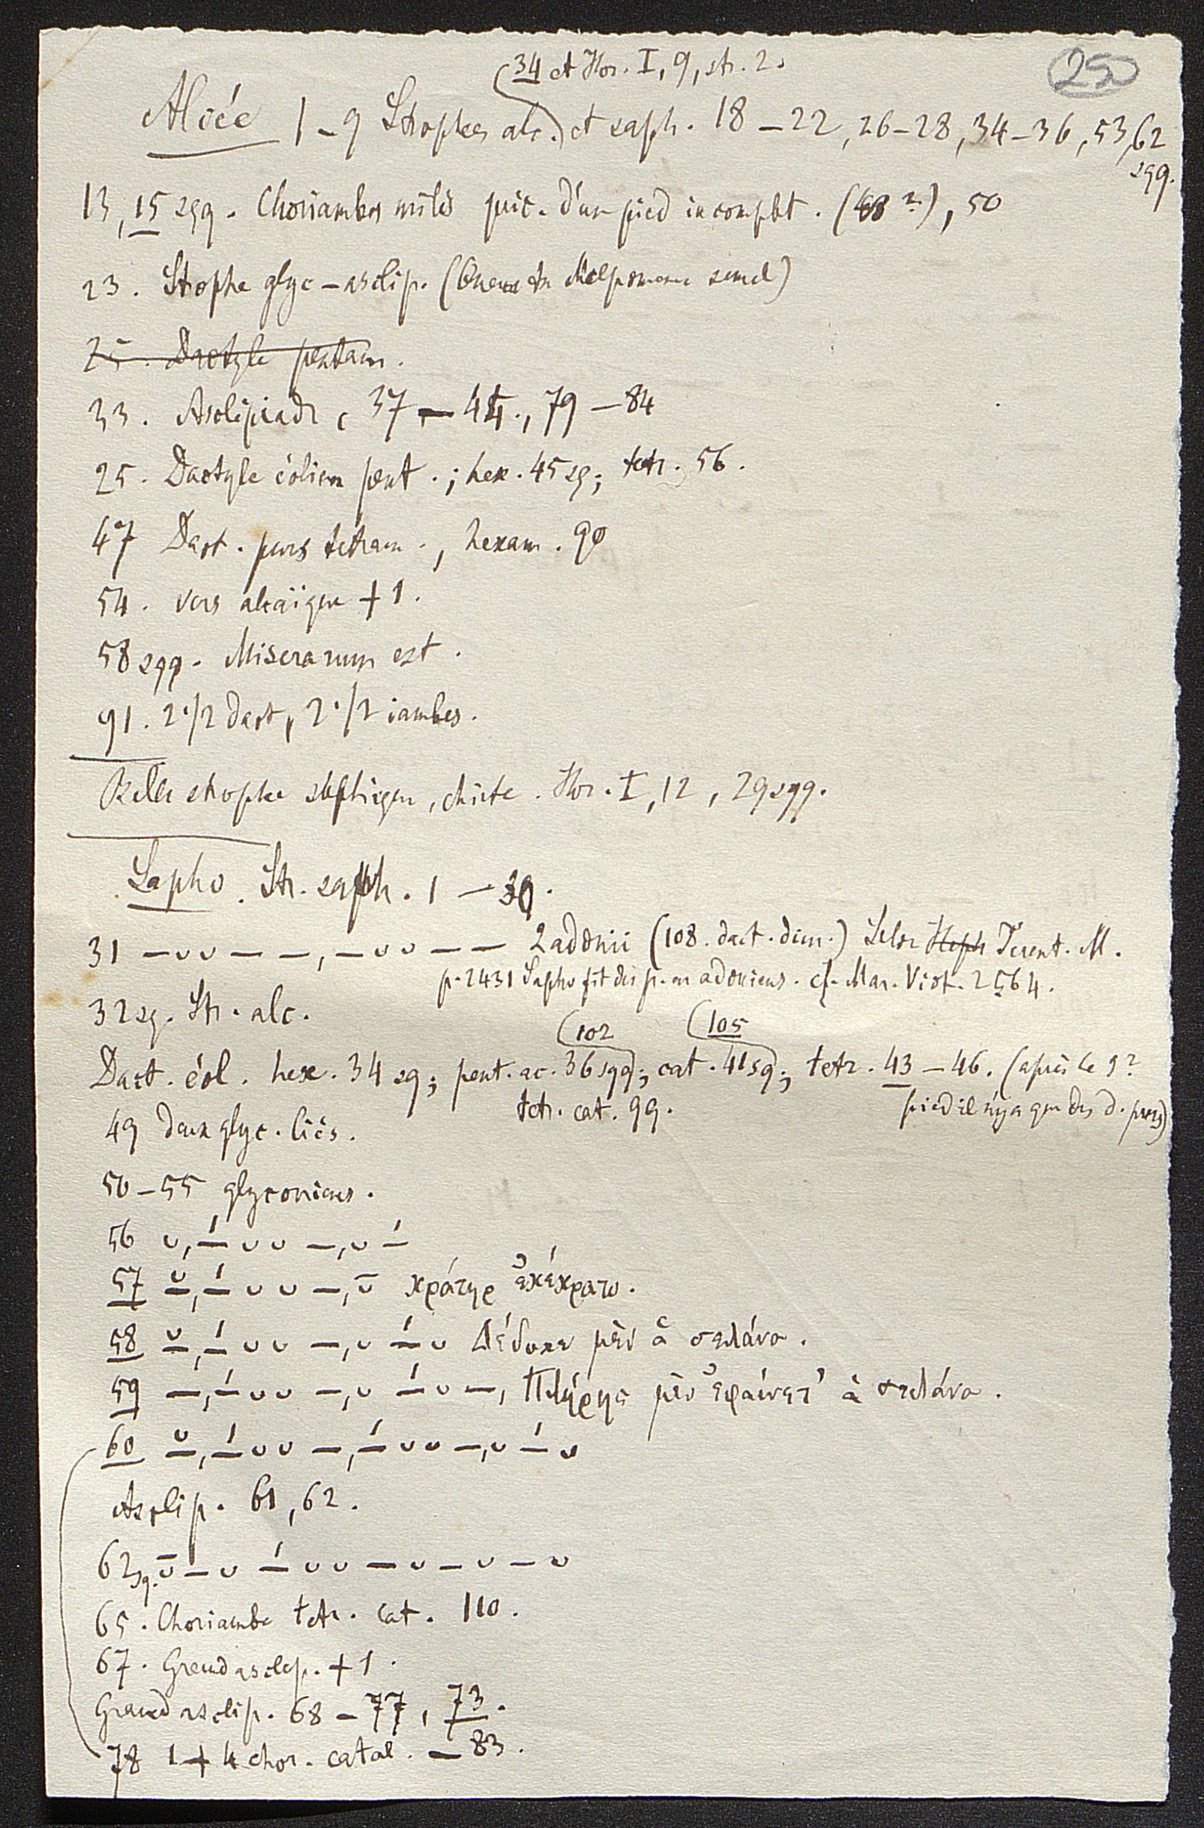 34 et Hor. I, 9, str. 2.
250
Alcée 1-9 Strophes alc. et saph. 18-22, 26-28, 34-36, 53, 62 sqq.
13, 15 sqq. Choriambes mêlés préc. d'un pied incomplet. (48 ?), 50
23. Strophe glyc-asclép. (Quem tu Melpomene semel)
25. Dactyle pentam.
33. Asclépiade, 37-44., 79-84
25. Dactyle éolien pent.; hex. 45 sq; tetr. 56.
47 Dact. purs tétram., hexam. 90
54. vers alcaïque + 1.
58 sqq. Miserarum est.
91. 2 1/2 dact, 2 1/2 iambes.
Belle strophe saphique, chute. Hor. I, 12, 29 sqq.
Sapho. Str. saph. 1-30.
31 —∪∪——, —∪∪—— 2 adonii (108. dact. dim.) Selon Heph Terent. M.
p. 2431 Sapho fit des p. en adoniens. cf. Mar. Vict. 2564.
32 sq. Str. alc.
(102 (105
Dact. éol. hex. 34 sq; pent. ac. 36 sqq; cat. 41 sq; tetr. 43-46. (après le 1er
tetr. cat. 99. pied il n'y a que des d. purs)
49 deux glyc. liés.
50-55 glyconiens.
56 ∪, —́∪∪—, ∪—́
57 ∪̱, —́∪∪—, ∪̄ κράτηρ ἐκέκρατο.
58 ∪̱, —́∪∪—, ∪—́∪ Δέδυκεν μὲν ἀ σελάνα.
59 —, —́∪∪—, ∪—́∪—, Πλήρης μὲν ἐφαίνετ' ἀ σελάνα.
60 ∪̱, —́∪∪—, —́∪∪—, ∪—́∪
Asclép. 61, 62.
62 sq. ∪̄—∪—́∪∪—∪—∪—∪
65. Choriambe tetr. cat. 110.
67. Grand asclep. + 1.
Grand asclép. 68-77, 73.
78 1 + 4 chor. catal. — 83.